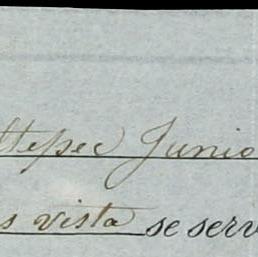 ltepec Junio
s vista se serv